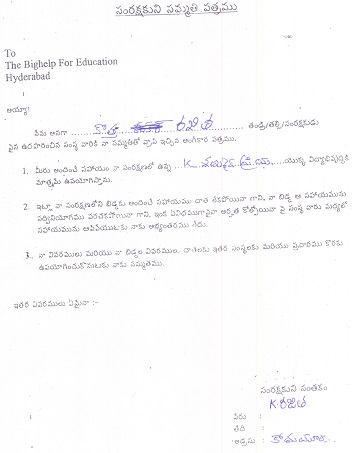 సంరక్షకుని సమ్మతి పత్రము
To
The Bighelp For Education
Hyderabad
అయ్యా!
నేను అనగా కొత్త రజిత తండ్రి/తల్లి/సంరక్షకుడు
పైన ఉదహరించిన సంస్థ వారికి నా సమ్మతితో వ్రాసి ఇచ్చిన అంగీకార పత్రము.
1. మీరు అందించే సహాయం నా సంరక్షణలో ఉన్న K. యొక్క విద్యాభివృద్ధికి
మాత్రమే ఉపయోగిస్తాను.
2. ఇట్లా నా సంరక్షణలోని బిడ్డకు అందించే సహాయము చాత లేకపోయినా గాని, నా బిడ్డ ఆ సహాయమును
సద్వినియోగము పరచకపోయినా గాని, ఇంక ఏవిధముగానైనా అర్హత కోల్పోయినా పై సంస్థ వారు మధ్యలో
సహాయమును ఆపివేయుటకు నాకు అభ్యంతరము లేదు.
3. నా వివరములు మరియు నా బిడ్డల వివరములు, దాతలకు ఇతర సంస్థలకు మరియు ప్రచారము కొరకు
ఉపయోగించుకొనుటకు నాకు సమ్మతము.
ఇతర వివరములు ఏమైనా :-
సంరక్షకుని సంతకం
K. రజిత
పేరు :
తేది :
అడ్రసు :